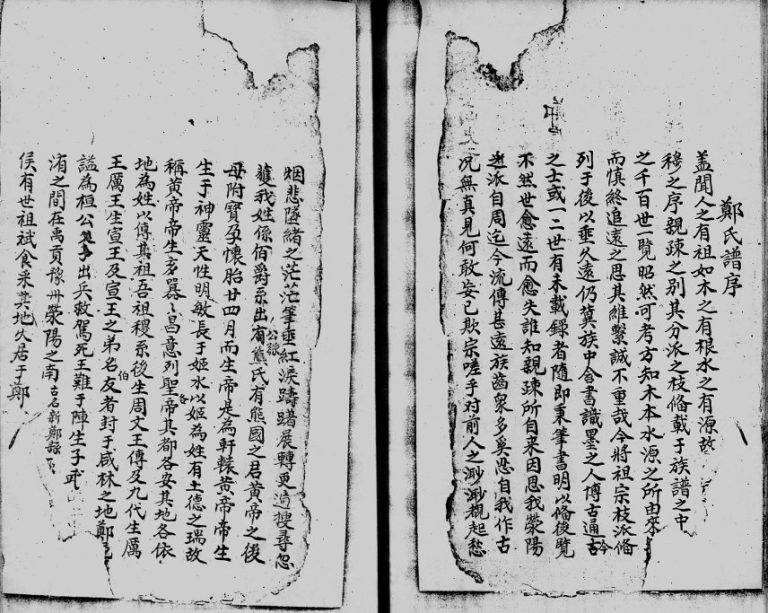 鄭氏譜序
盖聞人之有祖如木之有根水之有源故
穆之序親疎之別其分派之枝俻載于族譜之中
之千百世一覽昭然可考方知木本水源之所由來
而慎終追遠之思其維繫誠不重哉今將祖宗枝派俻
列于後以垂久遠仍冀族中含書識墨之人博古通今
之士或一二世有未載錄者隨即秉筆書明以俻後覽
不然世愈遠而愈失誰知親疎所自来因思我滎陽
派自周迄今流傳甚遠族齒衆多奚思自我作古
况無真見何敢妄已欺宗嗟乎对前人之渺渺覩起愁
烟悲隧緒之茫茫筆垂紅淚躊躇展轉更迨搜尋忽
獲我姓係伯爵系出有熊氏有熊國之君黃帝之後
公孫
母附寳孕懷胎廿四月而生帝是為軒轅黃帝帝生
生于神靈天性明敏長于姬水以姬為姓有土德之瑞故
稱黃帝帝生玄囂囂昌意列聖帝其都各安其地各依
地為姓以傳其祖吾祖稷系後生周文王傳及九代生厲
王厲王生宣王及宣王之弟名友者封于咸林之地鄭
伯
謚為桓公出兵救駕死王難于陣生子武
洧之間在禹貢豫州滎陽之南古名新鄭
侯有世祖斌食采其地久居于鄭